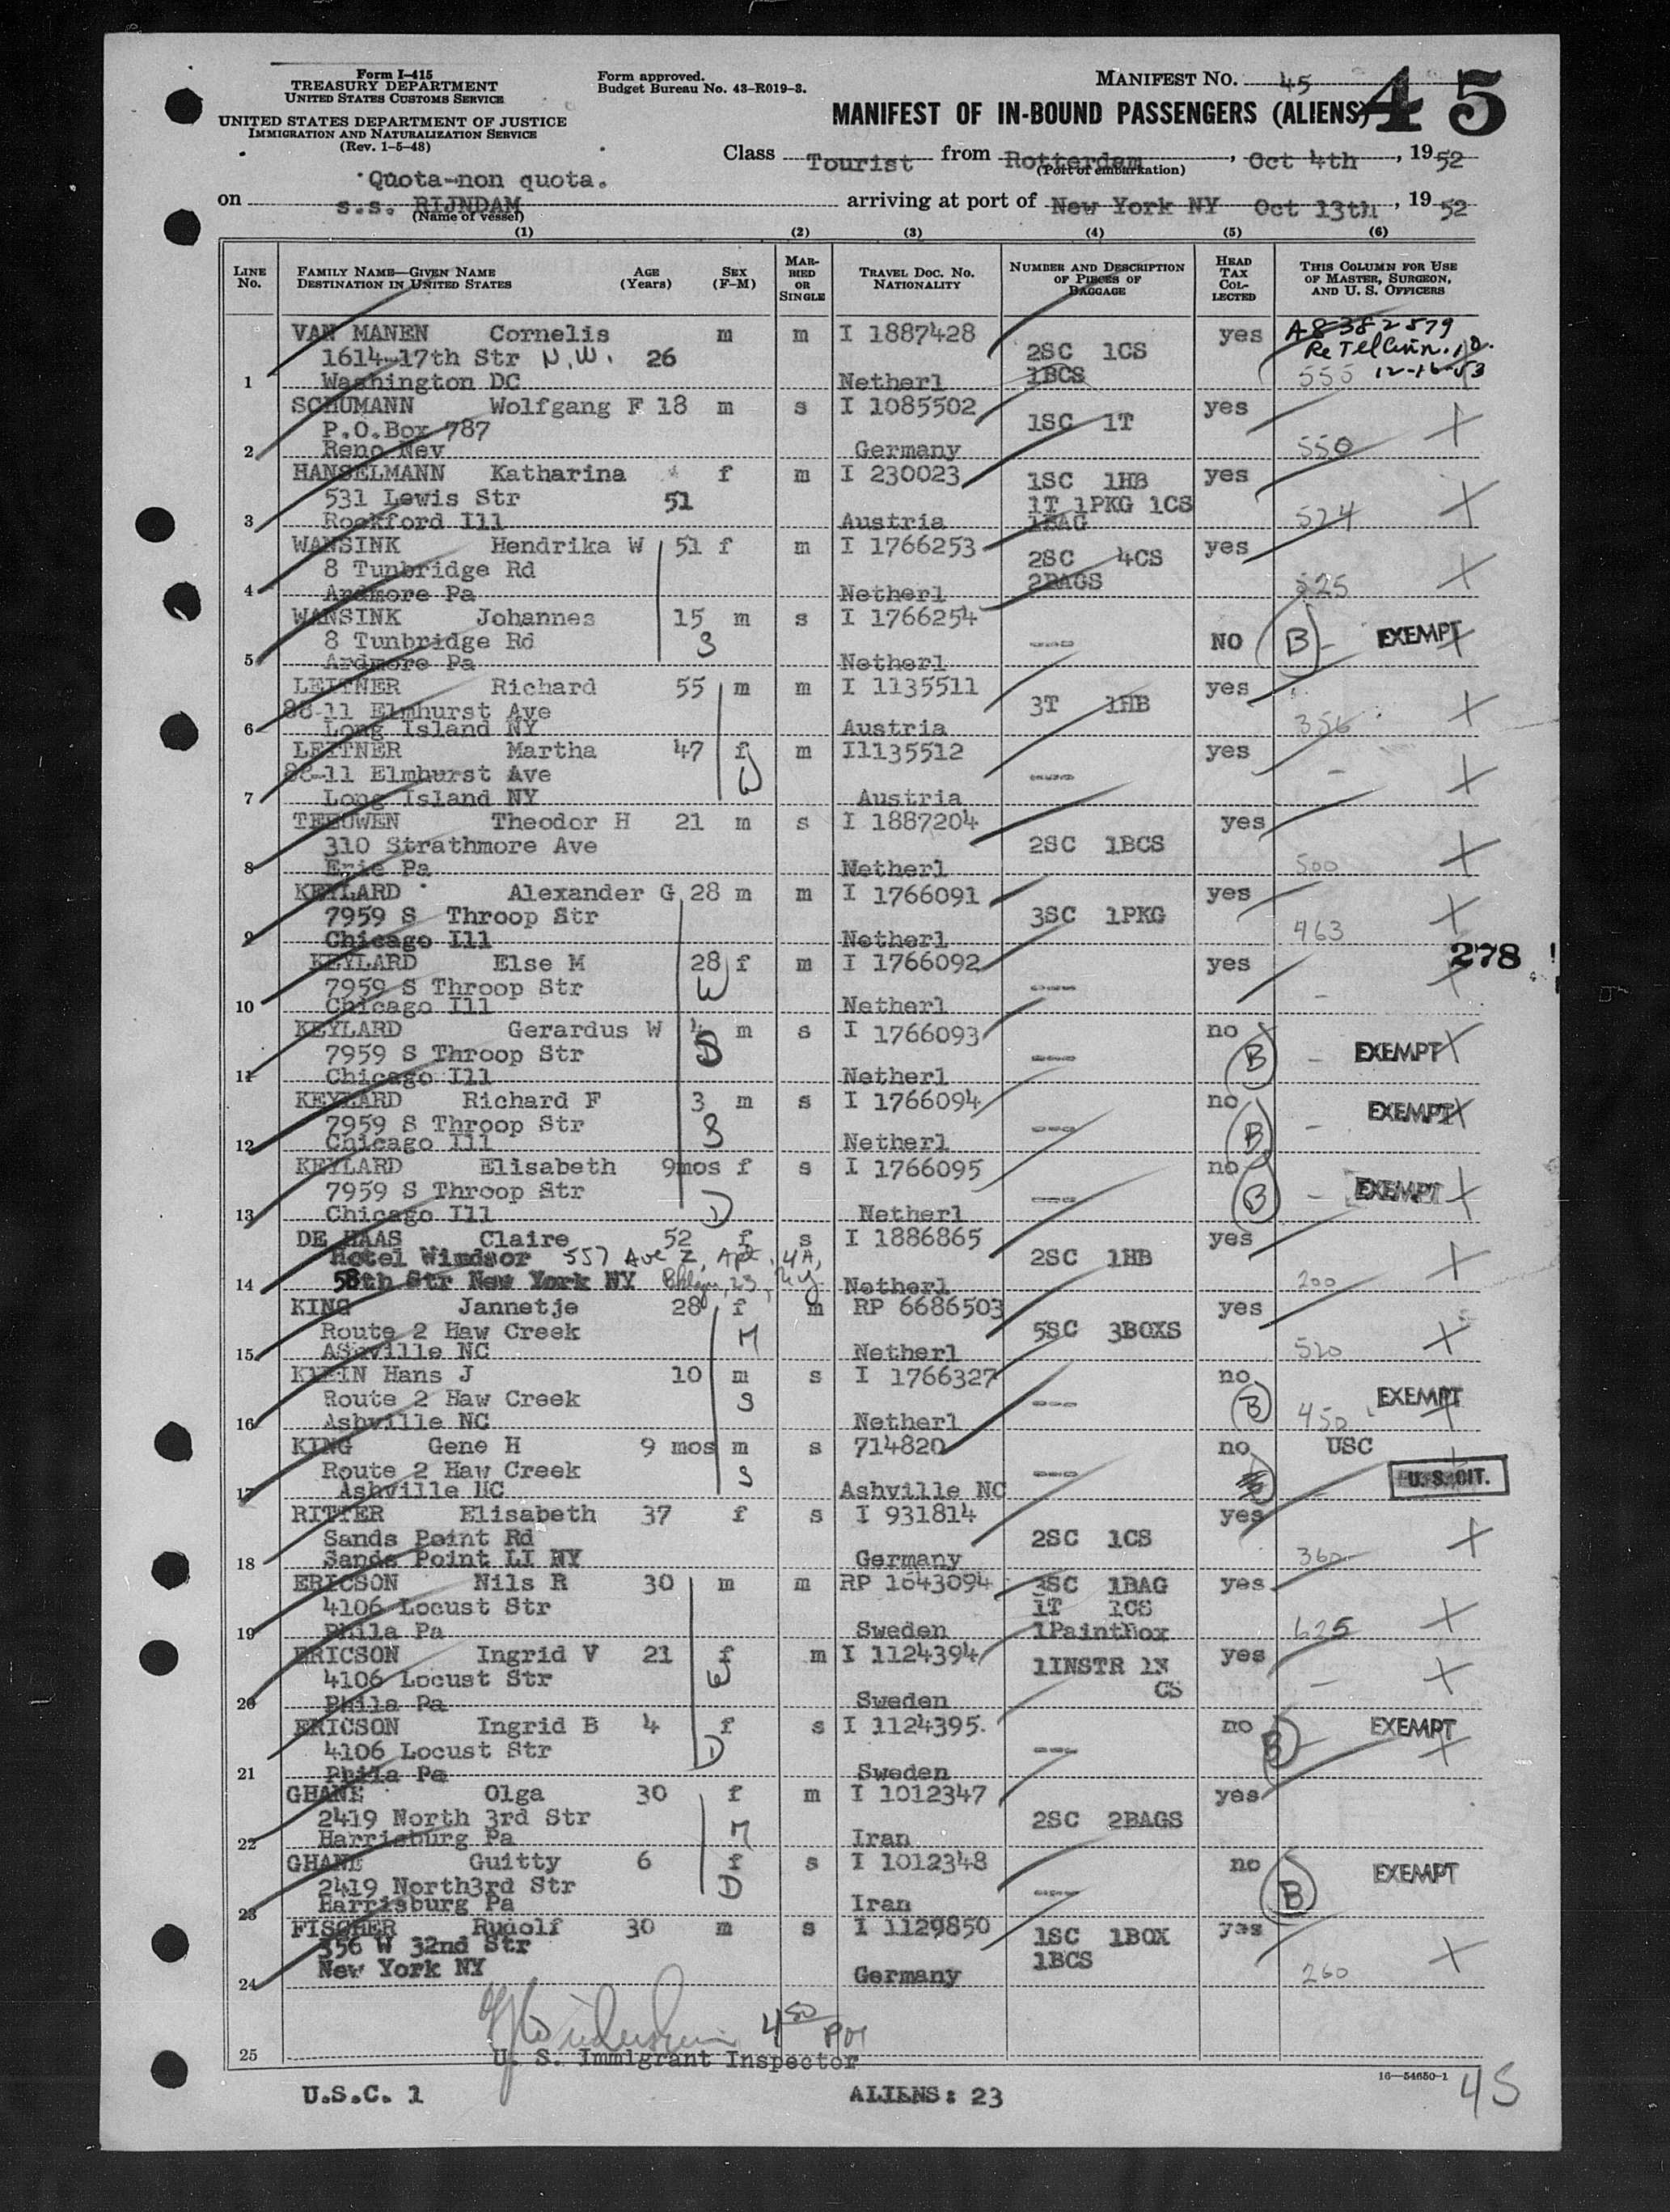 Form I-415
TREASURY DEPARTMENT
UNITED STATES CUSTOMS SERVICE
UNITED STATES DEPARTMENT OF JUSTICE
IMMIGRATION AND NATURALIZATION SERVICE
(Rev. 1-5-48)
Form approved.
Budget Bureau No. 43-R019-3.
MANIFEST NO. 45
45
MANIFEST OF IN-BOUND PASSENGERS (ALIENS)
Class Tourist from Rotterdam, Oct 4th, 1952
(Port of embarkation)
Quota-non quota.
on s.s. RIJNDAM arriving at port of New York NY Oct 13th, 1952
(Name of vessel)
(1) (2) (3) (4) (5) (6)
LINE NO.
FAMILY NAME—GIVEN NAME
DESTINATION IN UNITED STATES
AGE (Years)
SEX (F-M)
MARRIED OR SINGLE
TRAVEL DOC. NO.
NATIONALITY
NUMBER AND DESCRIPTION OF PIECES OF BAGGAGE
HEAD TAX COLLECTED
THIS COLUMN FOR USE OF MASTER, SURGEON, AND U. S. OFFICERS
VAN MANEN Cornelis m m I 1887428 yes A8382579
1614-17th Str N.W. 26 2SC 1CS
1 Washington DC Netherl 1BCS 555 12-16-53
SCHUMANN Wolfgang F 18 m s I 1085502 yes
P.O.Box 787 1SC 1T
2 Reno Nev Germany 550
HANSELMANN Katharina f m I 230023 1SC 1HB yes
531 Lewis Str 51 1T 1PKG 1CS
3 Rockford Ill Austria 1BAG 524
WANSINK Hendrika W 51 f m I 1766253 yes
8 Tunbridge Rd 2SC 4CS
4 Ardmore Pa Netherl 2BAGS 525
WANSINK Johannes 15 m s I 1766254
8 Tunbridge Rd S --- NO B - EXEMPT
5 Ardmore Pa Netherl
LEITNER Richard 55 m m I 1135511 yes
88-11 Elmhurst Ave 3T 1HB
6 Long Island NY Austria 356
LEITNER Martha 47 f m I1135512 yes
88-11 Elmhurst Ave W --- -
7 Long Island NY Austria
TEEUWEN Theodor H 21 m s I 1887204 yes
310 Strathmore Ave 2SC 1BCS
8 Erie Pa Netherl 500
KEYLARD Alexander G 28 m m I 1766091 yes
7959 S Throop Str 3SC 1PKG
9 Chicago Ill Netherl 463
278
KEYLARD Else M 28 f m I 1766092 yes
7959 S Throop Str W ---
10 Chicago Ill Netherl -
KEYLARD Gerardus W 4 m s I 1766093 no
7959 S Throop Str S --- B - EXEMPT
11 Chicago Ill Netherl
KEYLARD Richard F 3 m s I 1766094 no EXEMPT
7959 S Throop Str S --- B -
12 Chicago Ill Netherl
KEYLARD Elisabeth 9mos f s I 1766095 no
7959 S Throop Str D --- B - EXEMPT
13 Chicago Ill Netherl
DE HAAS Claire 52 f s I 1886865 yes
Hotel Windsor 557 Ave Z, Apt 4A, 2SC 1HB
14 58th Str New York NY Bklyn, 23, N.Y. Netherl 200
KING Jannetje 28 f m RP 6686503 yes
Route 2 Haw Creek M 5SC 3BOXS
15 AShville NC Netherl 520
KLEIN Hans J 10 m s I 1766327 no
Route 2 Haw Creek S --- B EXEMPT
16 Ashville NC Netherl 450
KING Gene H 9 mos m s 714820 no USC
Route 2 Haw Creek S ---
17 Ashville NC Ashville NC U.S.CIT.
RITTER Elisabeth 37 f s I 931814 yes
Sands Point Rd 2SC 1CS
18 Sands Point LI NY Germany 360
ERICSON Nils R 30 m m RP 1643094 3SC 1BAG yes
4106 Locust Str 1T 1CS
19 Phila Pa Sweden 1Paintbox 625
ERICSON Ingrid V 21 f m I 1124394 yes
4106 Locust Str W 1INSTR
20 Phila Pa Sweden CS -
ERICSON Ingrid B 4 f s I 1124395. no EXEMPT
4106 Locust Str D --- B -
21 Phila Pa Sweden
GHANE Olga 30 f m I 1012347 yes
2419 North 3rd Str M 2SC 2BAGS
22 Harrisburg Pa Iran
GHANE Guitty 6 f s I 1012348 no EXEMPT
2419 North3rd Str D --- B
23 Harrisburg Pa Iran
FISCHER Rudolf 30 m s I 1129850 yes
356 W 32nd Str 1SC 1BOX
New York NY 1BCS
24 Germany 260
4 50 PM
25 U. S. Immigrant Inspector
16—54650-1
U.S.C. 1 ALIENS: 23
45